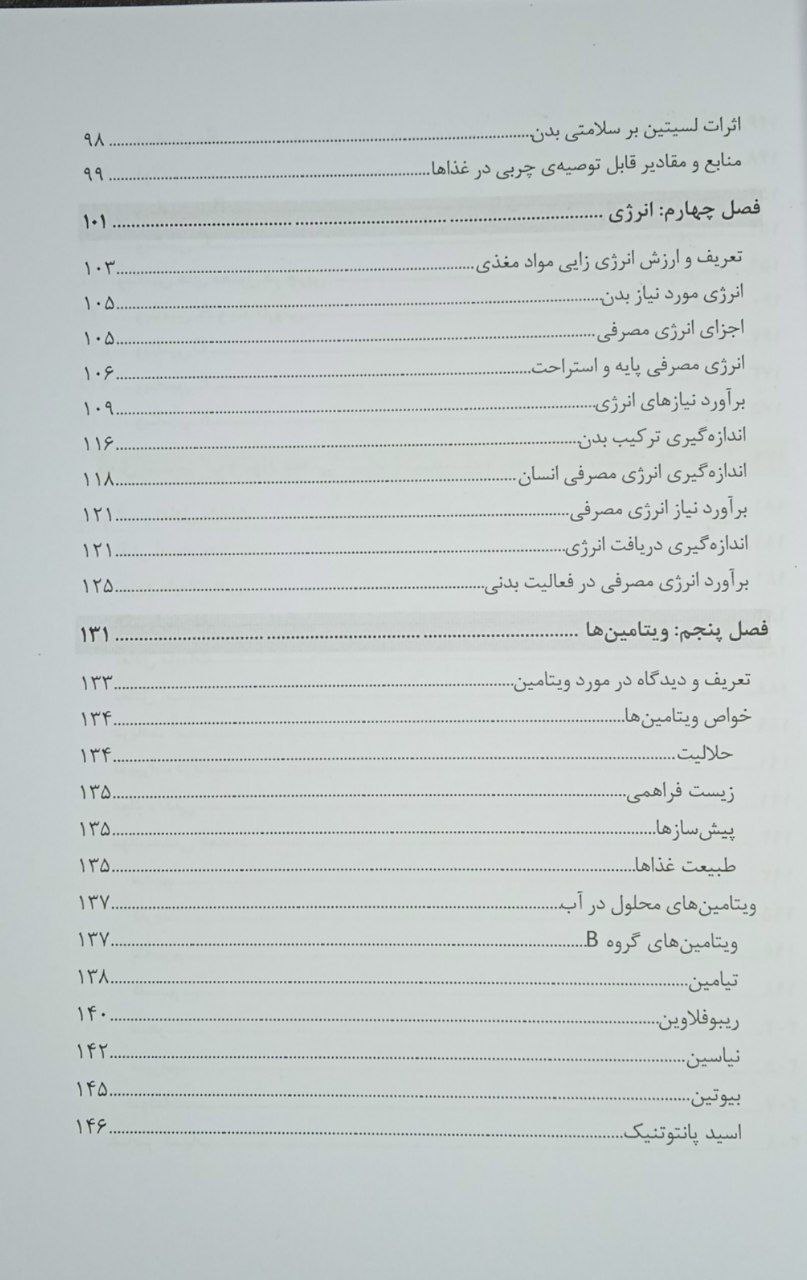 اثرات لسیتین بر سلامتی بدن ........ ۹۸
منابع و مقادیر قابل توصیه‌ی چربی در غذاها ........ ۹۹
فصل چهارم: انرژی ........ ۱۰۱
تعریف و ارزش انرژی زایی مواد مغذی ........ ۱۰۳
انرژی مورد نیاز بدن ........ ۱۰۵
اجزای انرژی مصرفی ........ ۱۰۵
انرژی مصرفی پایه و استراحت ........ ۱۰۶
برآورد نیازهای انرژی ........ ۱۰۹
اندازه‌گیری ترکیب بدن ........ ۱۱۶
اندازه‌گیری انرژی مصرفی انسان ........ ۱۱۸
برآورد نیاز انرژی مصرفی ........ ۱۲۱
اندازه‌گیری دریافت انرژی ........ ۱۲۱
برآورد انرژی مصرفی در فعالیت بدنی ........ ۱۲۵
فصل پنجم: ویتامین‌ها ........ ۱۳۱
تعریف و دیدگاه در مورد ویتامین ........ ۱۳۳
خواص ویتامین‌ها ........ ۱۳۴
حلالیت ........ ۱۳۴
زیست فراهمی ........ ۱۳۵
پیش‌سازها ........ ۱۳۵
طبیعت غذاها ........ ۱۳۵
ویتامین‌های محلول در آب ........ ۱۳۷
ویتامین‌های گروه B ........ ۱۳۷
تیامین ........ ۱۳۸
ریبوفلاوین ........ ۱۴۰
نیاسین ........ ۱۴۲
بیوتین ........ ۱۴۵
اسید پانتوتنیک ........ ۱۴۶